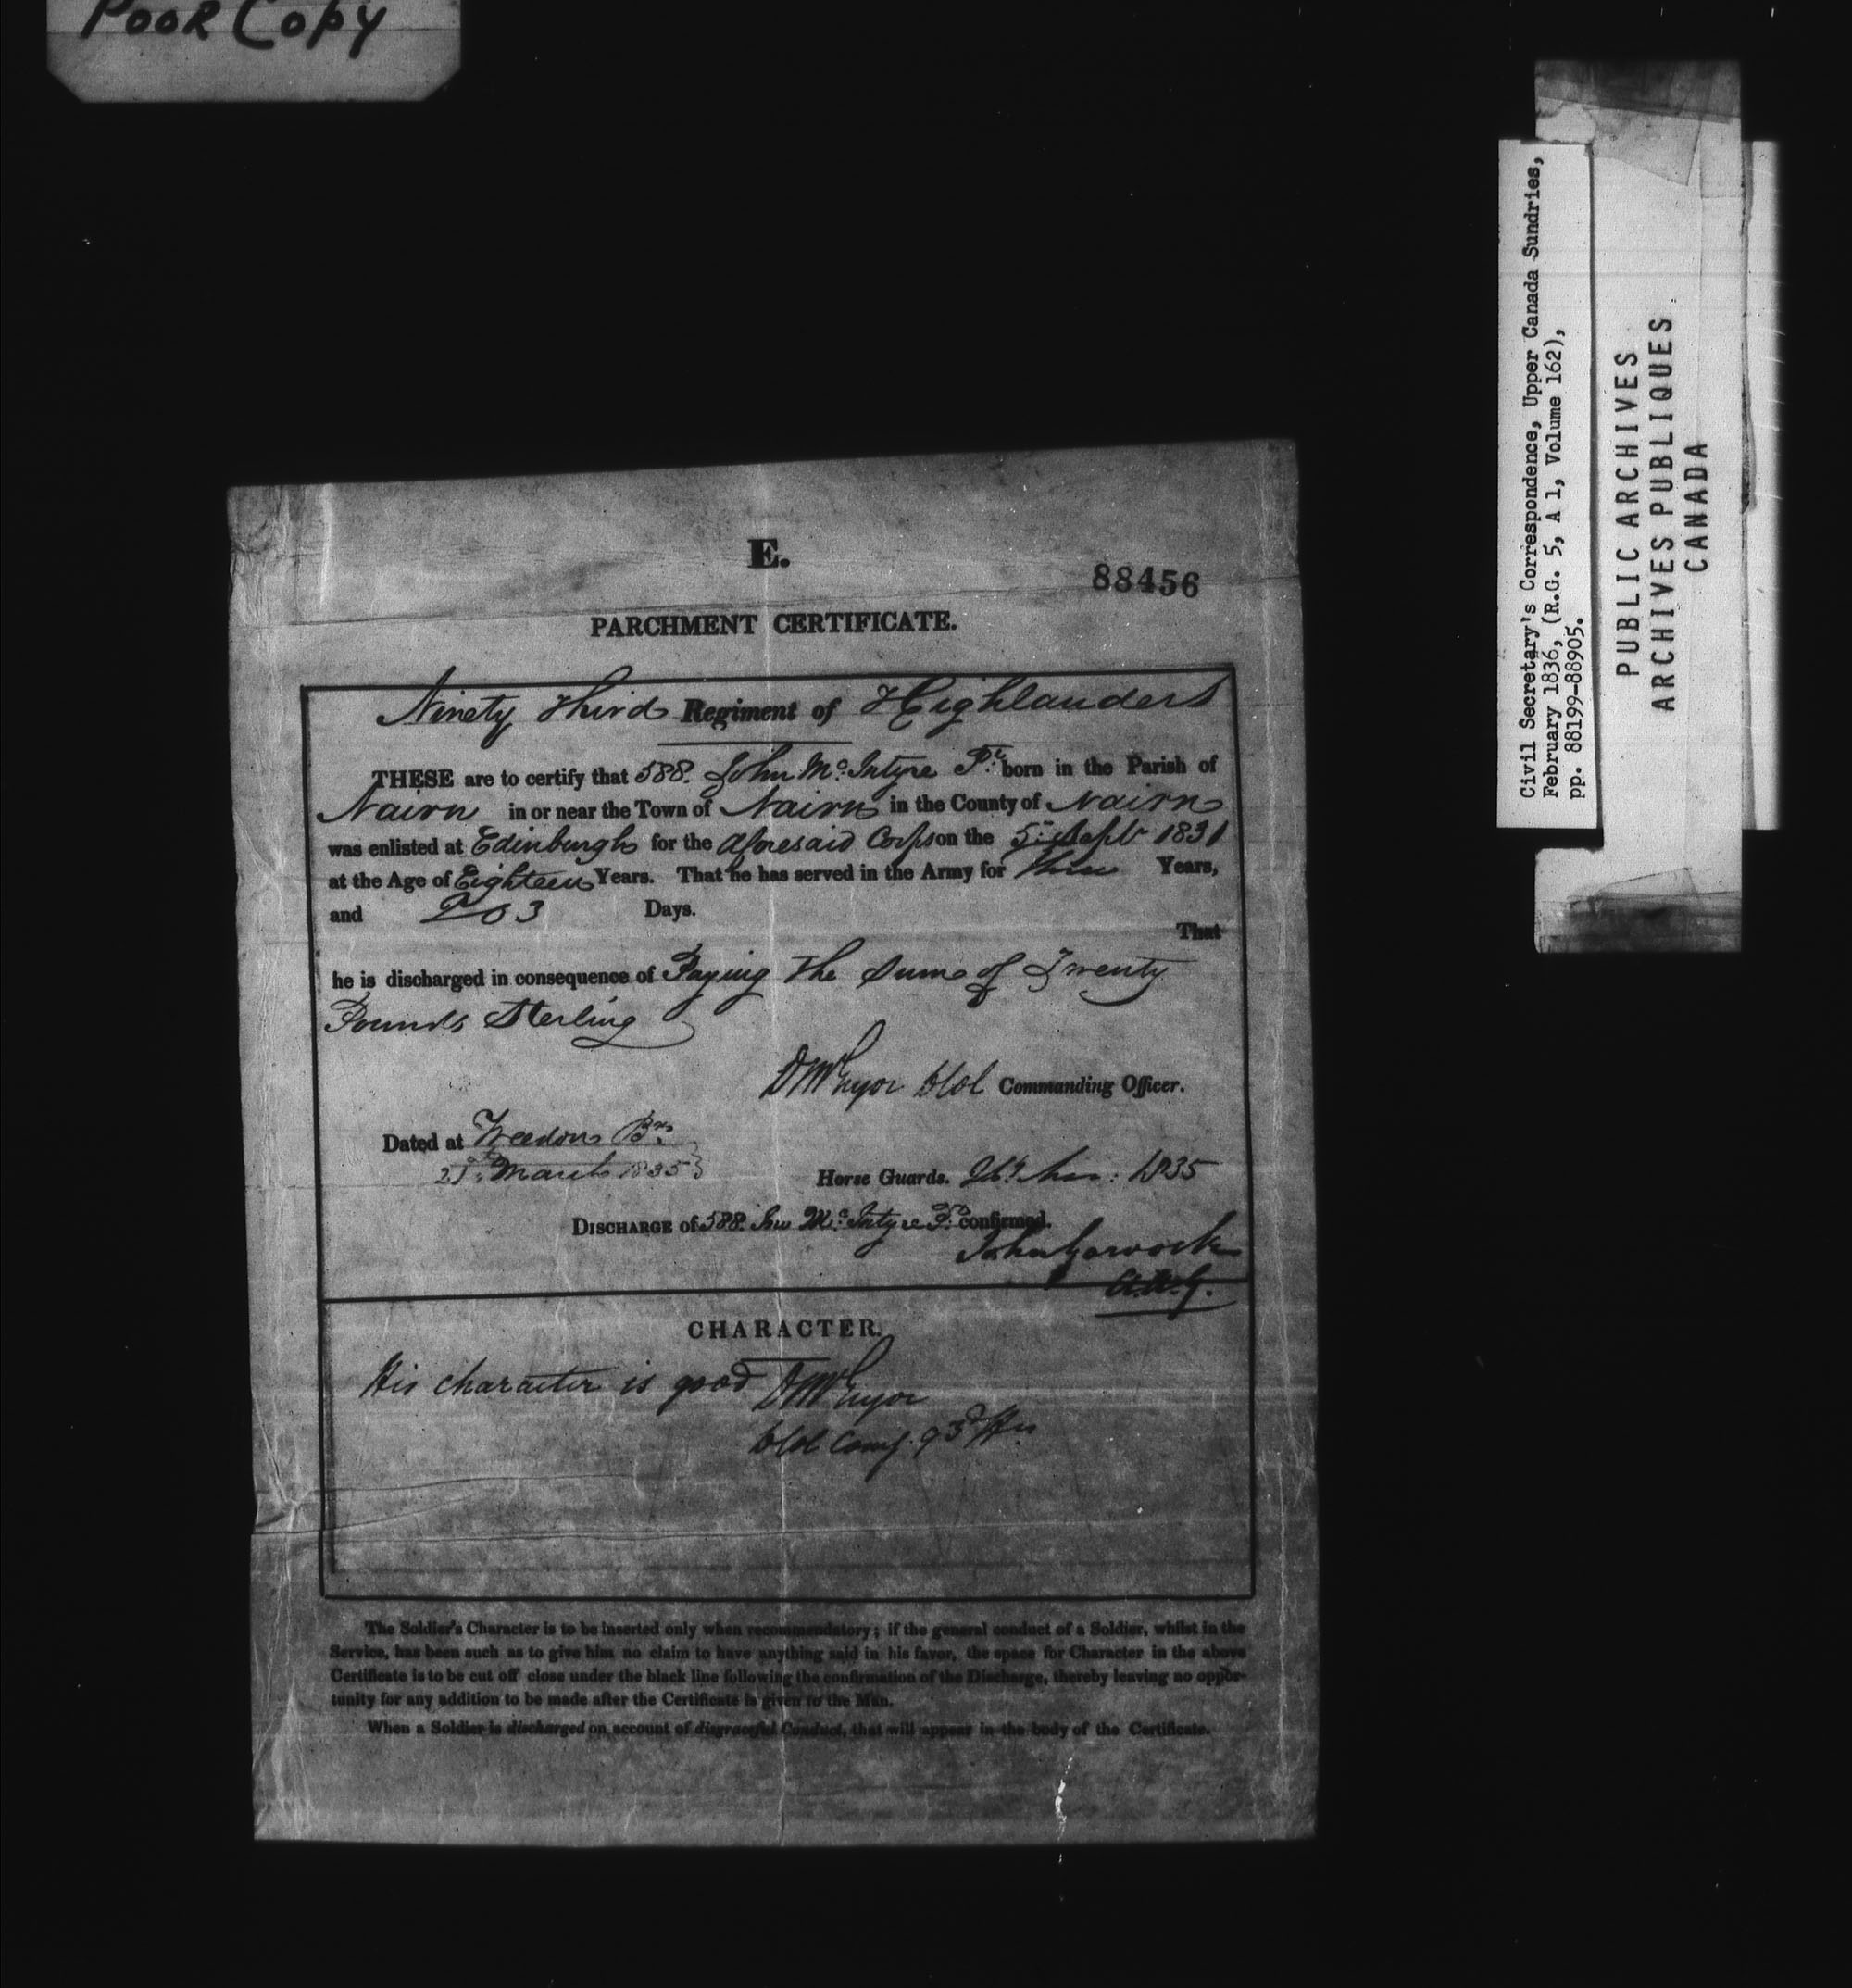 Poor Copy
Civil Secretary's Correspondence, Upper Canada Sundries,
February 1836, (R.G. 5, A 1, Volume 162),
pp. 88199-88905.
PUBLIC ARCHIVES
ARCHIVES PUBLIQUES
CANADA
E.
88456
PARCHMENT CERTIFICATE.
Ninety Third Regiment of Highlanders
THESE are to certify that 588. John Mc. Intyre Pt. born in the Parish of
Nairn in or near the Town of Nairn in the County of Nairn
was enlisted at Edinburgh for the aforesaid Corps on the 5th Sept 1831
at the Age of Eighteen Years. That he has served in the Army for Three Years,
and 203 Days.
That
he is discharged in consequence of Paying the Sum of Twenty
Pounds Sterling
Commanding Officer.
Dated at Weedon Bks
March 1835
Horse Guards. 1835
DISCHARGE of 588. Mc. Intyre Pt. confirmed.
A.A.G.
CHARACTER.
His character is good
Comg. 93d
The Soldier's Character is to be inserted only when recommendatory; if the general conduct of a Soldier, whilst in the
Service, has been such as to give him no claim to have anything said in his favor, the space for Character in the above
Certificate is to be cut off close under the black line following the confirmation of the Discharge, thereby leaving no oppor-
tunity for any addition to be made after the Certificate is given to the Man.
When a Soldier is discharged on account of disgraceful Conduct, that will appear in the body of the Certificate.